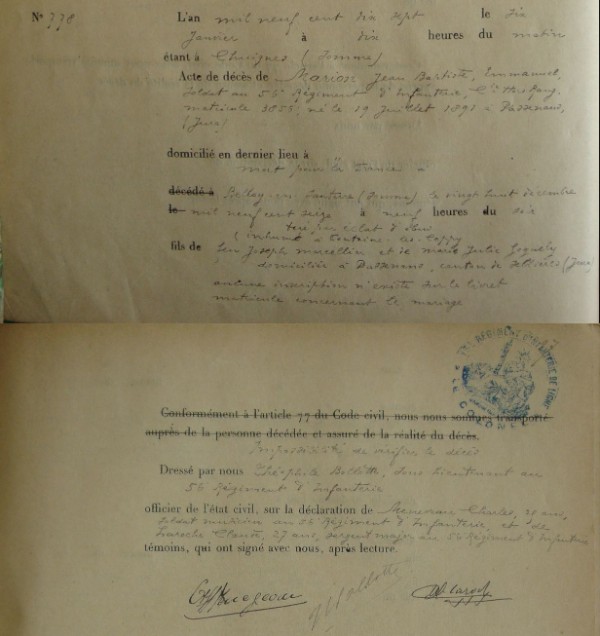 N° 778 L'an mil neuf cent dix sept le six
Janvier à dix heures du matin
étant à Chuignes (Somme)
Acte de décès de Marion Jean Baptiste, Emmanuel,
soldat au 56e Régiment d'Infanterie, Cie Hre Rang,
matricule 3655 né le 19 Juillet 1891 à Passenans,
(Jura)
domicilié en dernier lieu à
mort pour la France à
décédé à Belloy-en-Santerre (Somme) le vingt huit décembre
le mil neuf cent seize à neuf heures du soir
tué par éclat d'obus
(inhumé à Fontaine-les-Cappy
fils de Léon Joseph Marcellin et de Marie Julie
domiciliés à Passenans, canton de Sellières (Jura)
aucune inscription n'existe sur le livret
matricule concernant le mariage
RÉGIMENT D'INFANTERIE DE LIGNE
LE COLONEL
Conformément à l'article 77 du Code civil, nous nous sommes transporté
auprès de la personne décédée et assuré de la réalité du décès.
Impossibilité de vérifier le décès
Dressé par nous Théophile Bellotte, sous lieutenant au
56e Régiment d'Infanterie
officier de l'état civil, sur la déclaration de Charles, ans,
soldat musicien au 56e Régiment d'Infanterie, et de
27 ans, sergent major au 56e Régiment d'Infanterie
témoins, qui ont signé avec nous, après lecture.